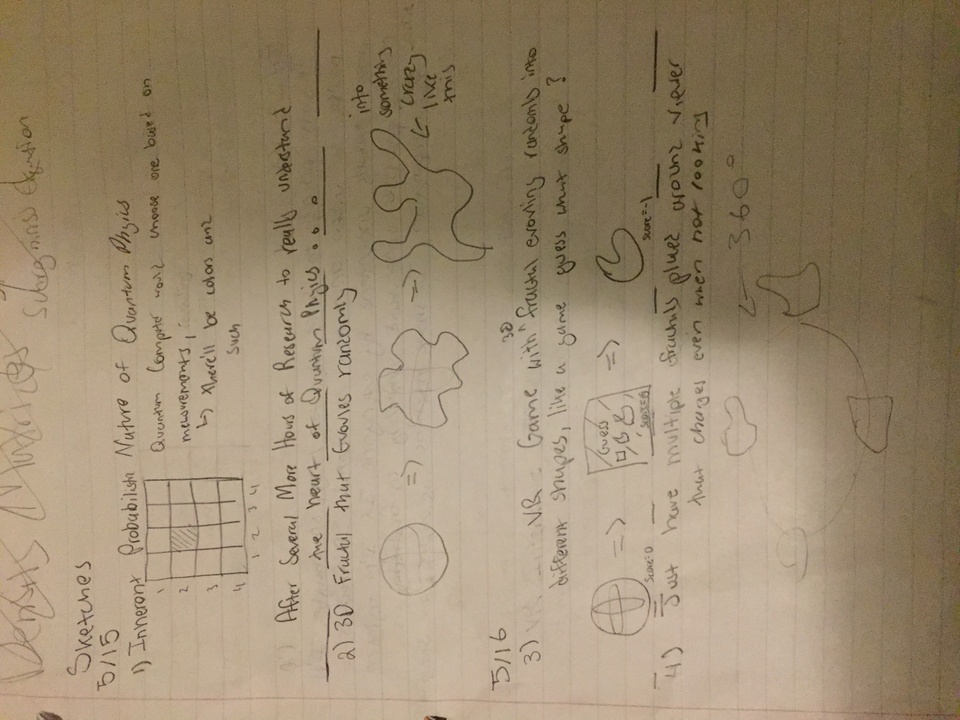 Density Matrices
Schrodinger's Equation
Sketches
5/15
1) Inherent Probabilistic Nature of Quantum Physics
1
2
3
4
1 2 3 4
Quantum Computer would choose one based on
measurements,
↳ there'll be colors and
such
After Several More Hours of Research to really understand
the heart of Quantum Physics . . .
2) 3D Fractal that Evovles randomly
=> => into
something
← crazy
like
this
5/16
3) VR Game with ^3D fractal evolving randomly into
different shapes, like a game guess what shape?
Score=0
=>
Guess
Score=0
=>
Score=-1
4) Just have multiple fractals placed around viewer
that changes even when not looking
← 360°